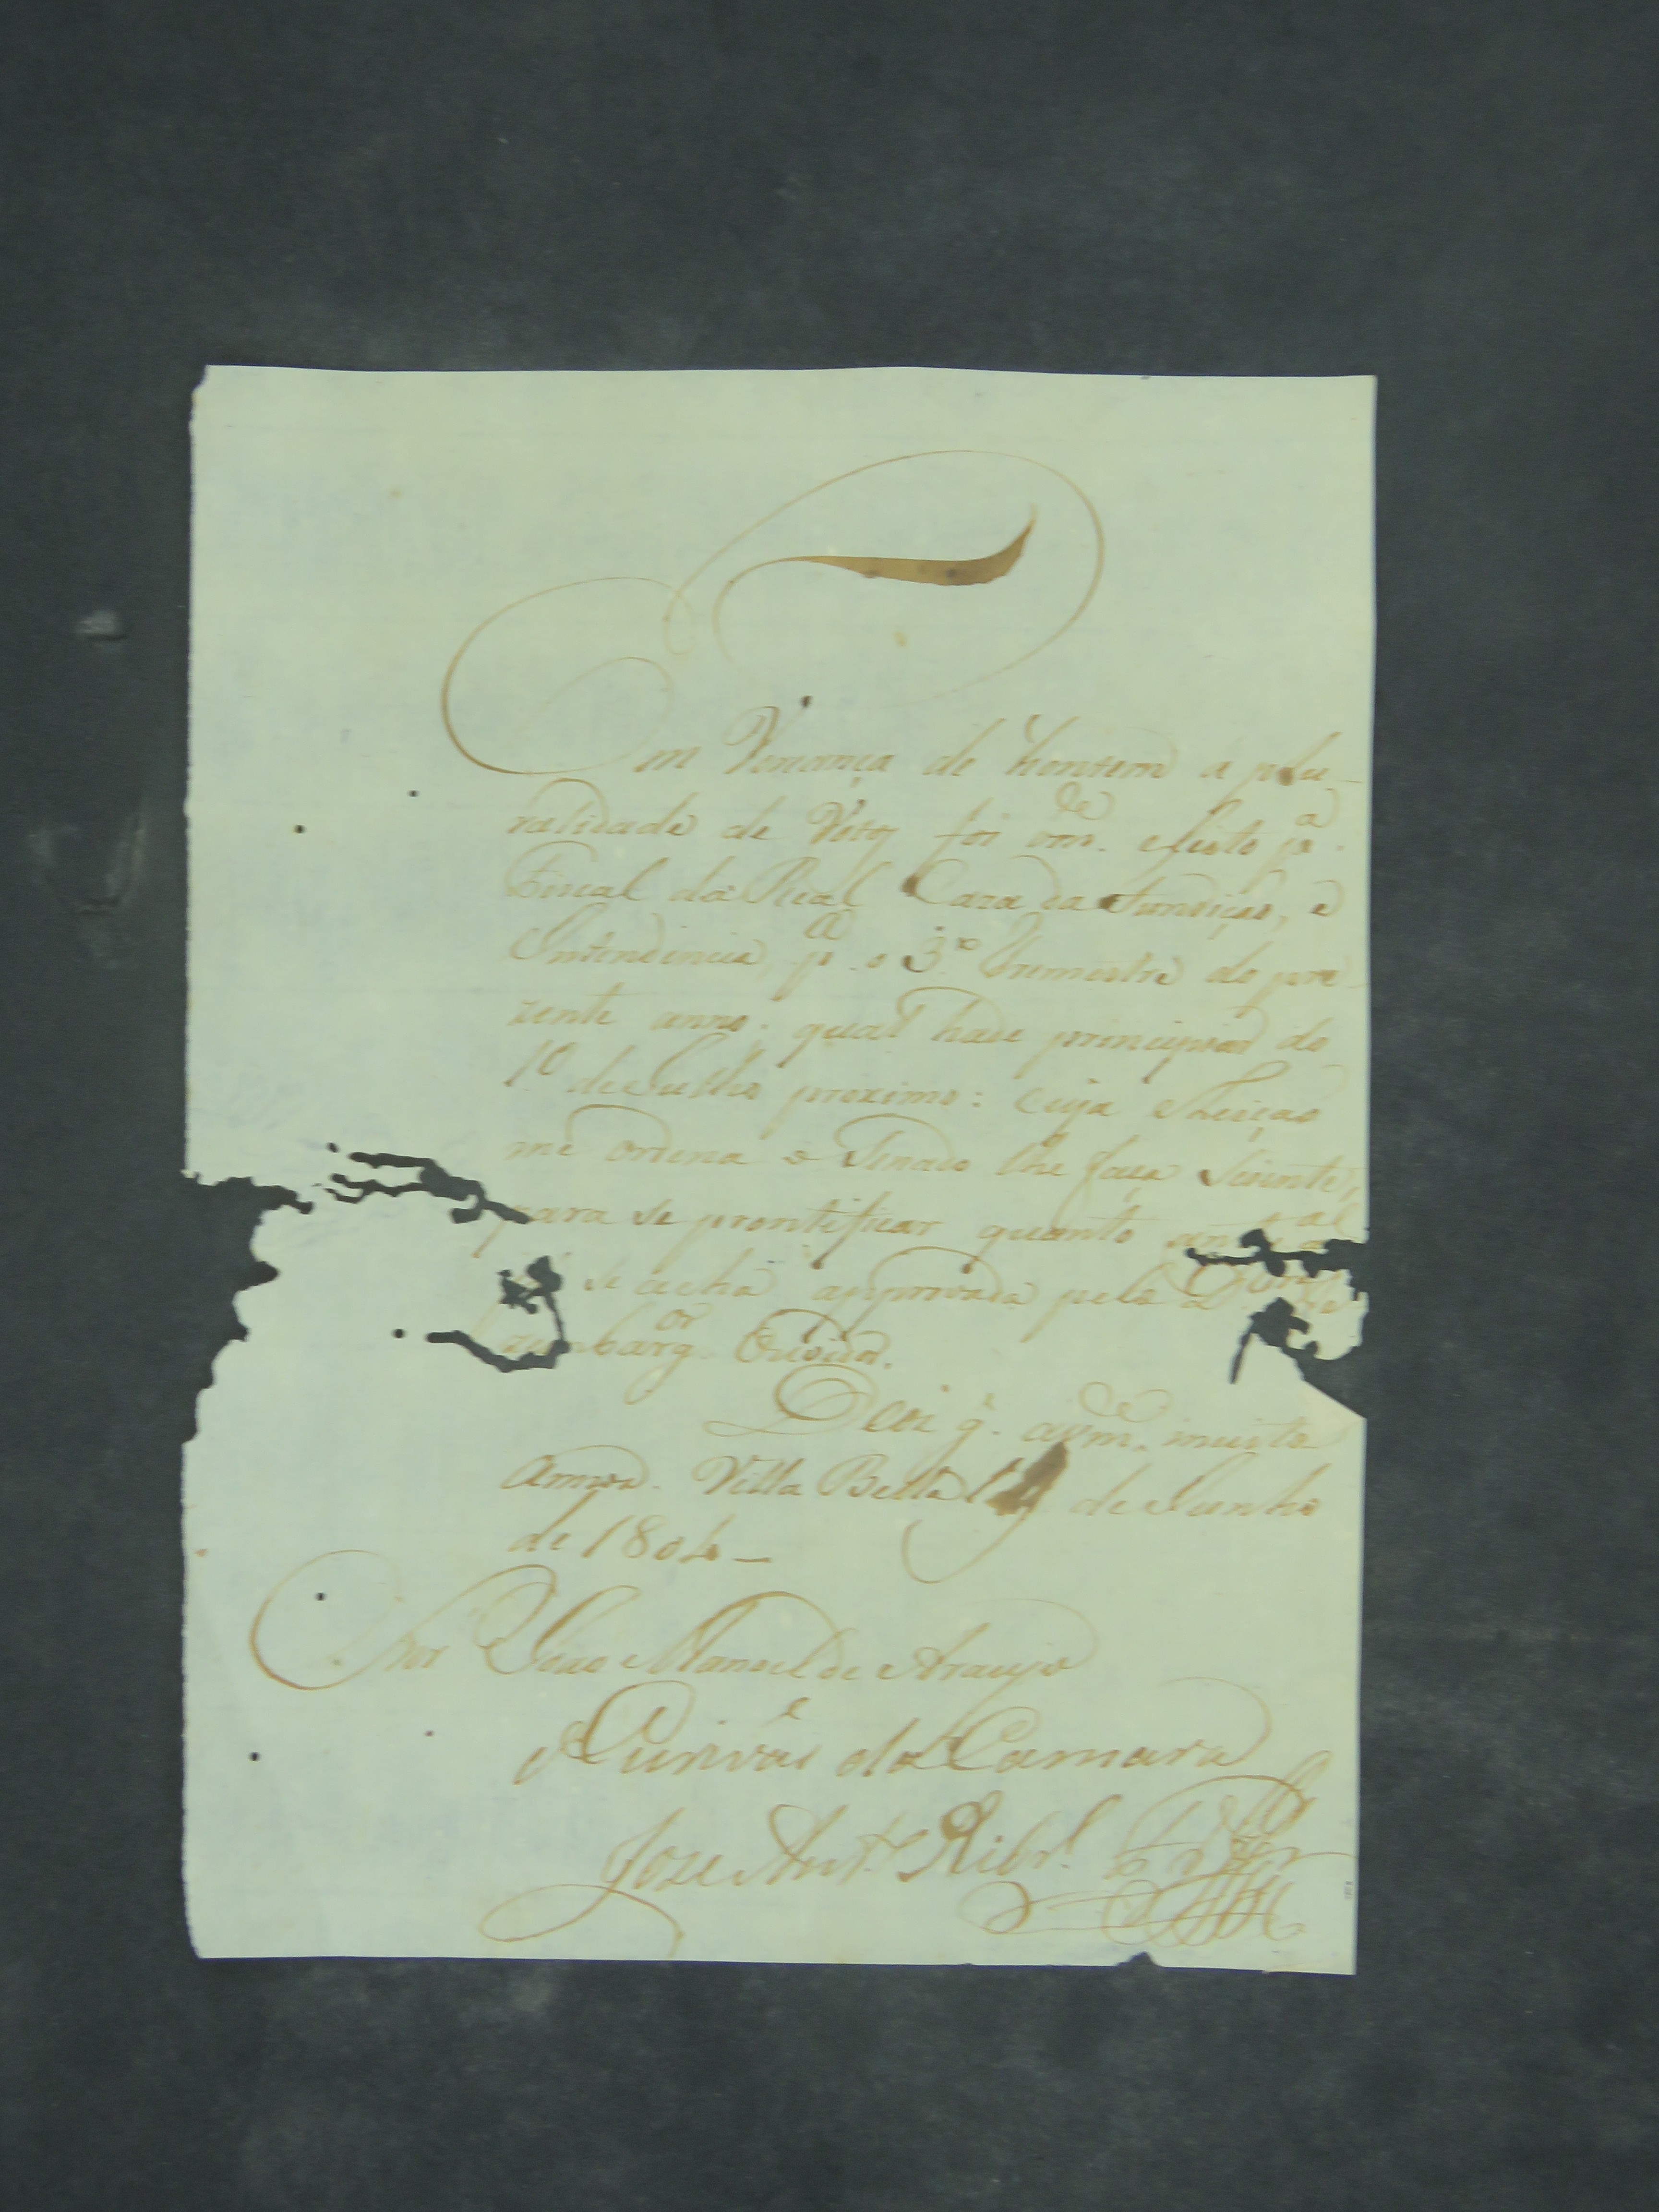 Em Veriança de hontem a plu-
ralidade de Votos foi vm.ce eleito p.a
Fiscal da Real Caza da Fundiçaõ, e
Intendencia, p.a o 3.o Trimestre do pre-
zente anno: qual hade principiar do
1.o de Julho proximo: cuja eleiçaõ
me ordena o Senado lhe faça sciente,
para se prontificar quanto
se acha approvada pelo D.or
zembarg.or Ouvidor.
Deos g.e a vm.ce muitos
Annos. Villa Bella 19 de Junho
de 1804 —
Snr Joao Manoel de Araujo
O Escrivaõ da Camara
Joze Ant.o Ribr.o